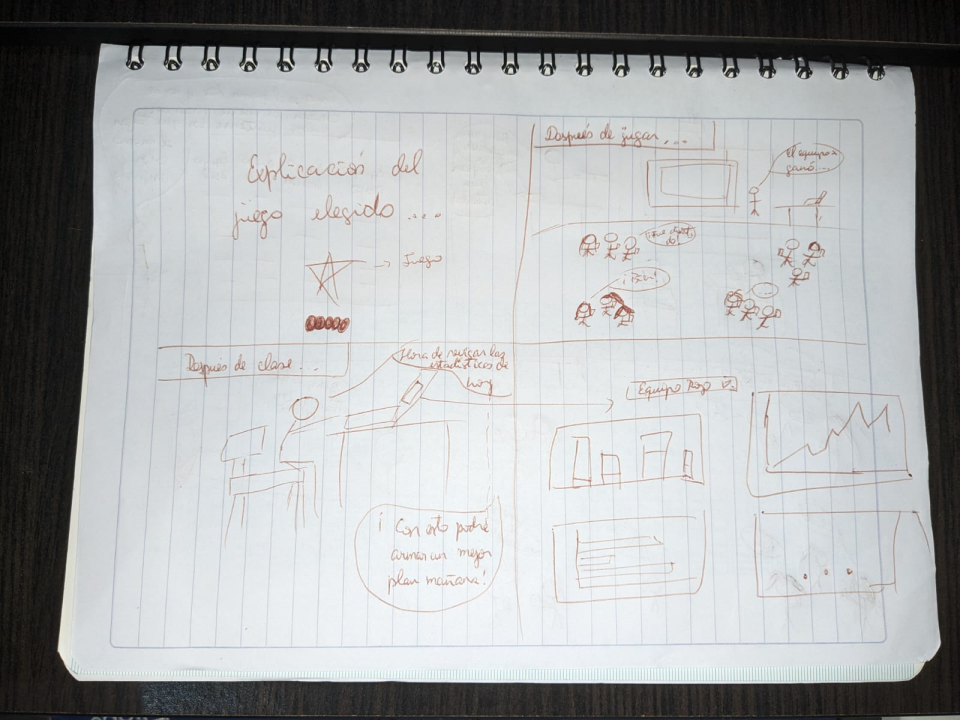 Explicación del
juego elegido ....
→ Juego
Después de jugar ....
El equipo
ganó...
¡Bien!
...
Después de clase ...
Hora de revisar las
estadísticas de
hoy
¡Con esto podré
armar un mejor
plan mañana!
Equipo Rojo